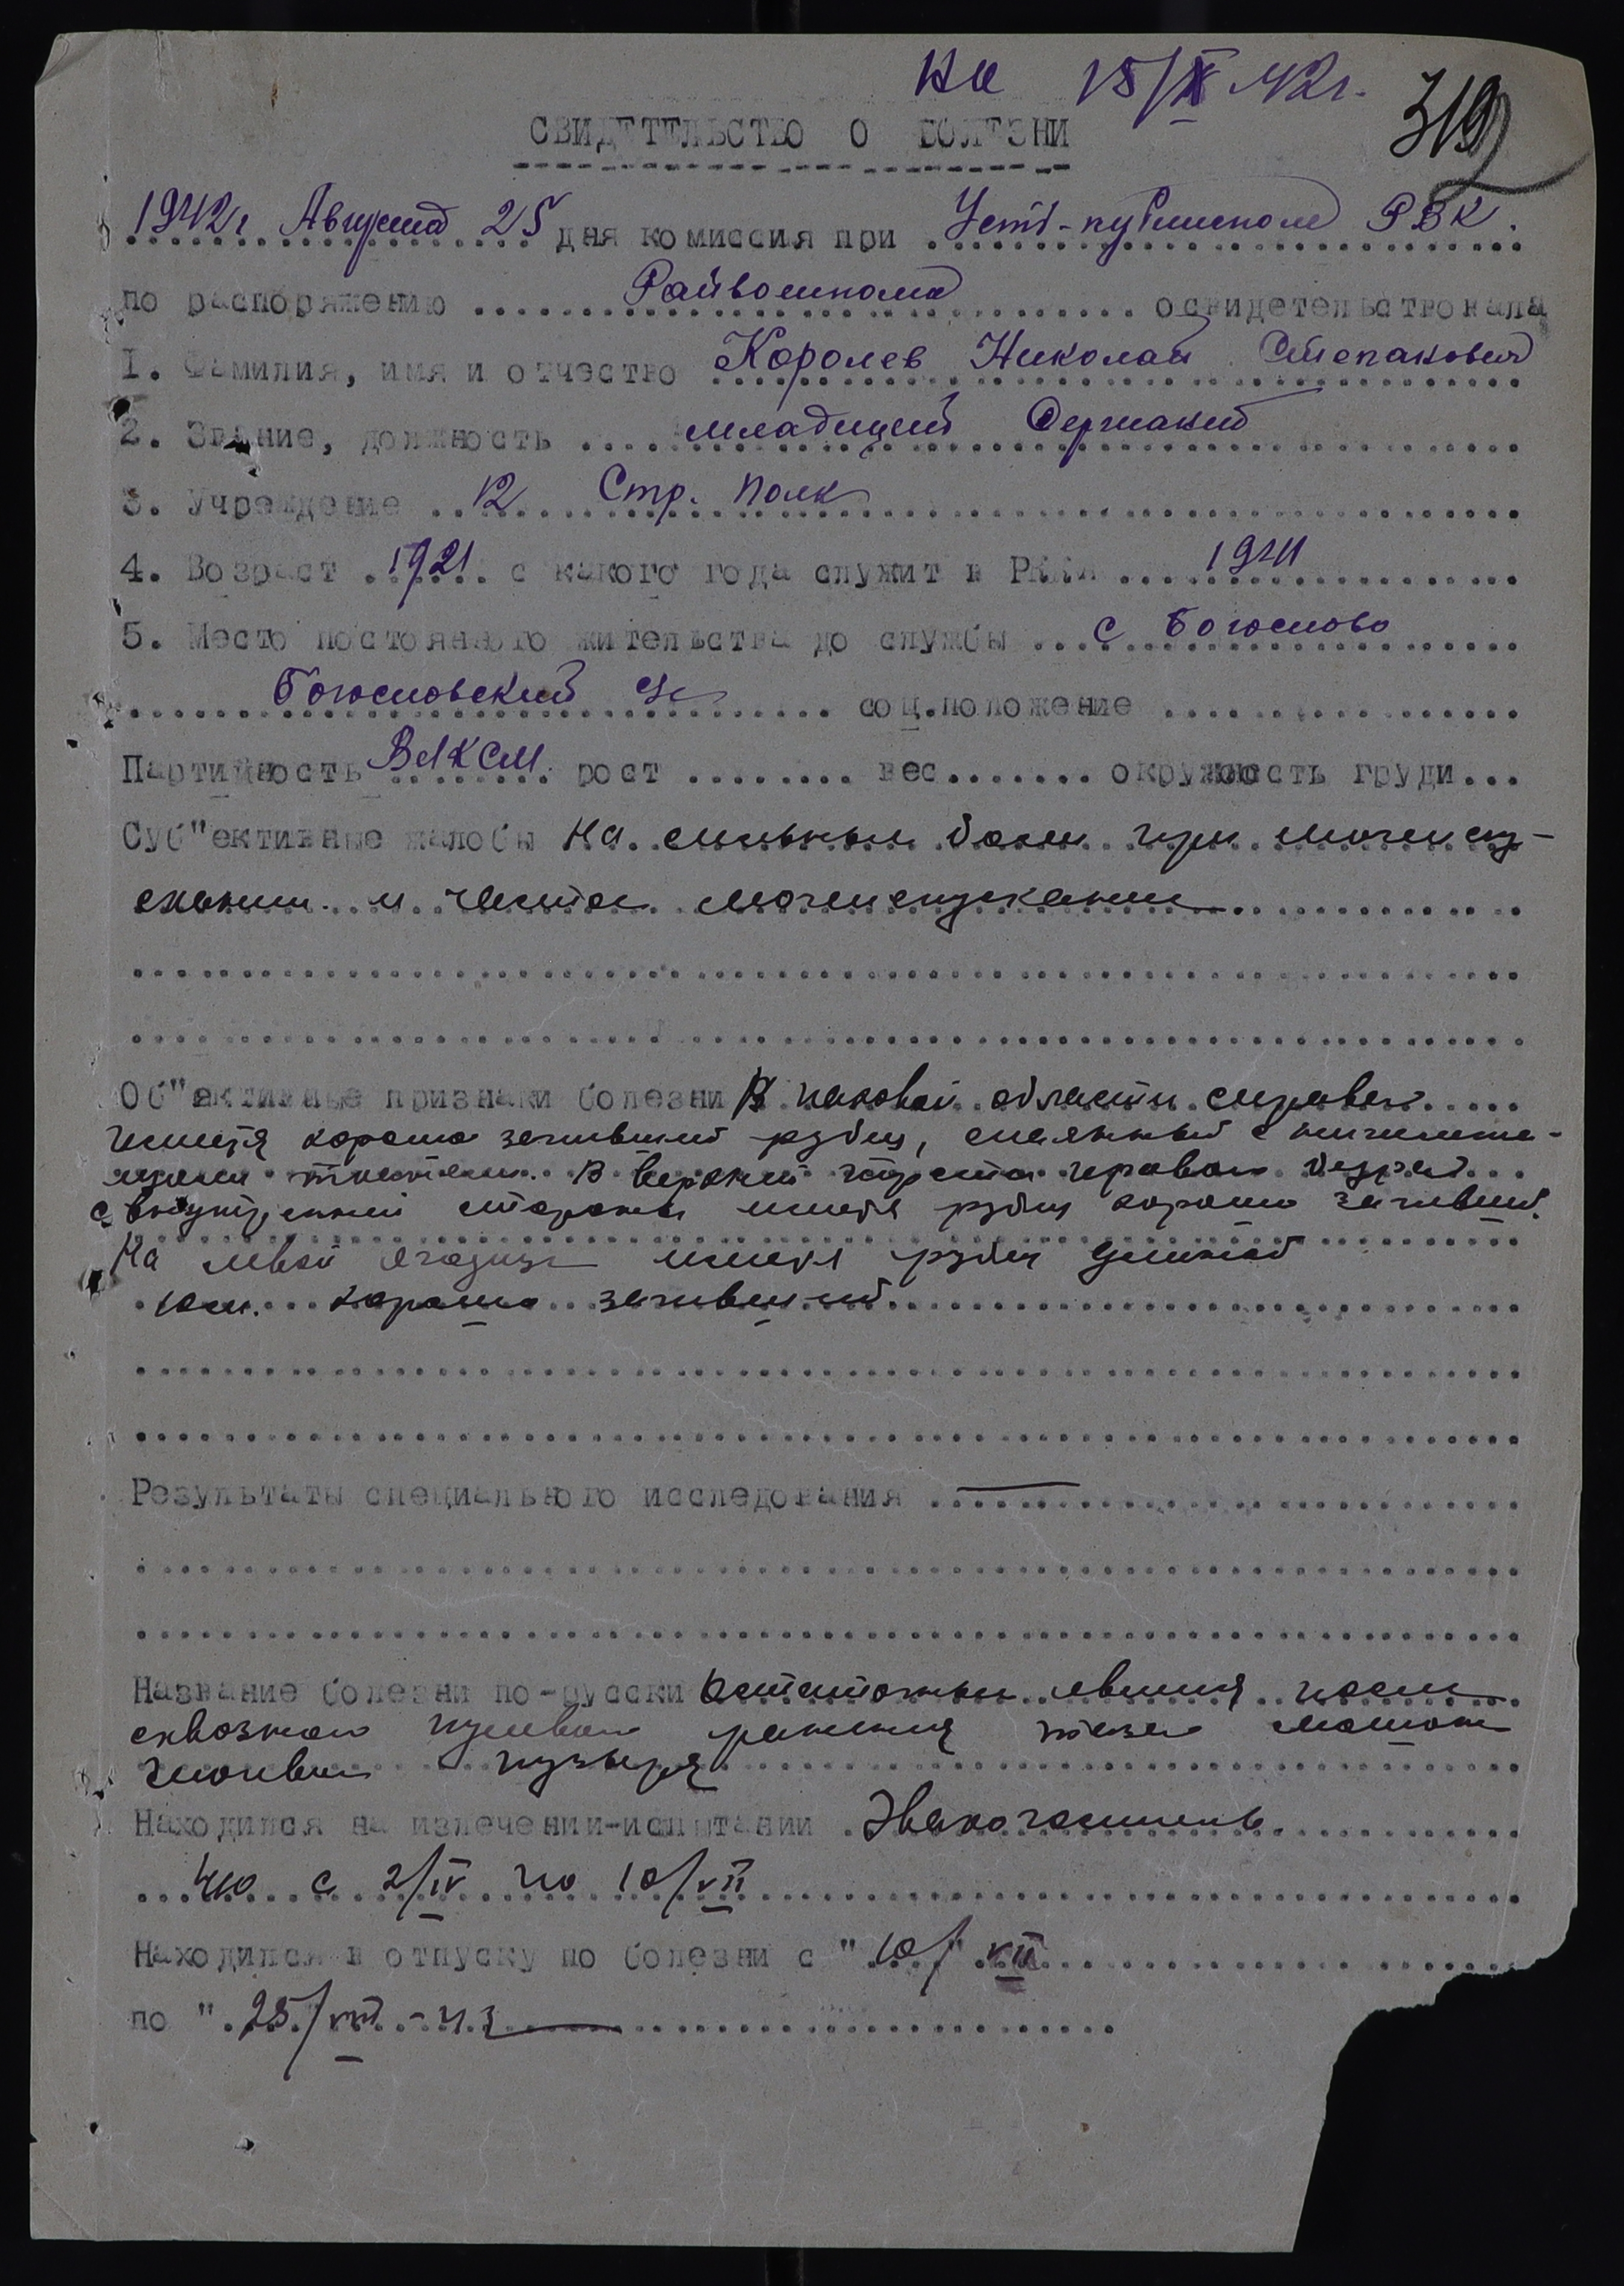 на 15/X 42г.
319
СВИДЕТЕЛЬСТВО О БОЛЕЗНИ
1942г Августа 25 дня комиссия при Усть-кубинском РВК.
по распоряжению Райвоенкома освидетельствовала
1. Фамилия, имя и отчество Королев Николай Степанович
2. Звание, должность младший Сержант
3. Учреждение 12 Стр. полк
4. Возраст 1921 с какого года служит в РККА 1941
5. Место постоянного жительства до службы с Богослово
Богословский с/с соц.положение
Партийность ВЛКСМ рост вес окружность груди
Суб"ективные жалобы На сильные боли при мочеиспу-
скании и частое мочеиспускание
Об"ективные признаки болезни В паховой области справа
имеется хорошо заживший рубец, спаянный с нижележа-
щими тканями. В верхней трети правого бедра
с внутренней стороны имеется рубец хорошо заживший.
На левой ягодице имеется рубец длиной
10см. хорошо заживший
Результаты специального исследования —
Название болезни по-русски Остаточные явления после
сквозного пулевого ранения таза
мочевого пузыря
Находился на излечении-испытании Эвакогоспиталь
с 2/IV по 10/VII
Находился в отпуску по болезни с "10/" VII
по "25/VIII-42